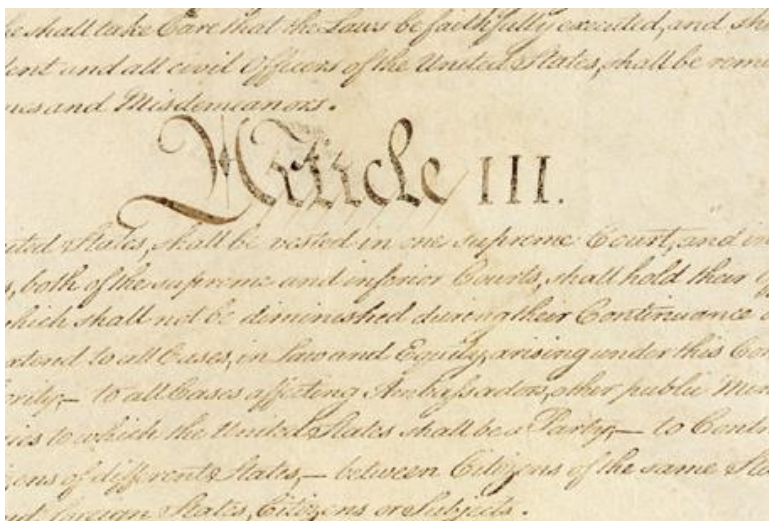 he shall take Care that the Laws be faithfully executed, and sh
dent and all civil Officers of the United States, shall be remo
mes and Misdemeanors.
Article III.
ited States, shall be vested in one supreme Court, and in
s, both of the supreme and inferior Courts, shall hold their Of
which shall not be diminished during their Continuance i
extend to all Cases, in Law and Equity, arising under this Con
ority;— to all Cases affecting Ambassadors, other public Min
sies to which the United States shall be a Party;— to Contr
izens of different States,— between Citizens of the same Sta
nd foreign States, Citizens or Subjects.